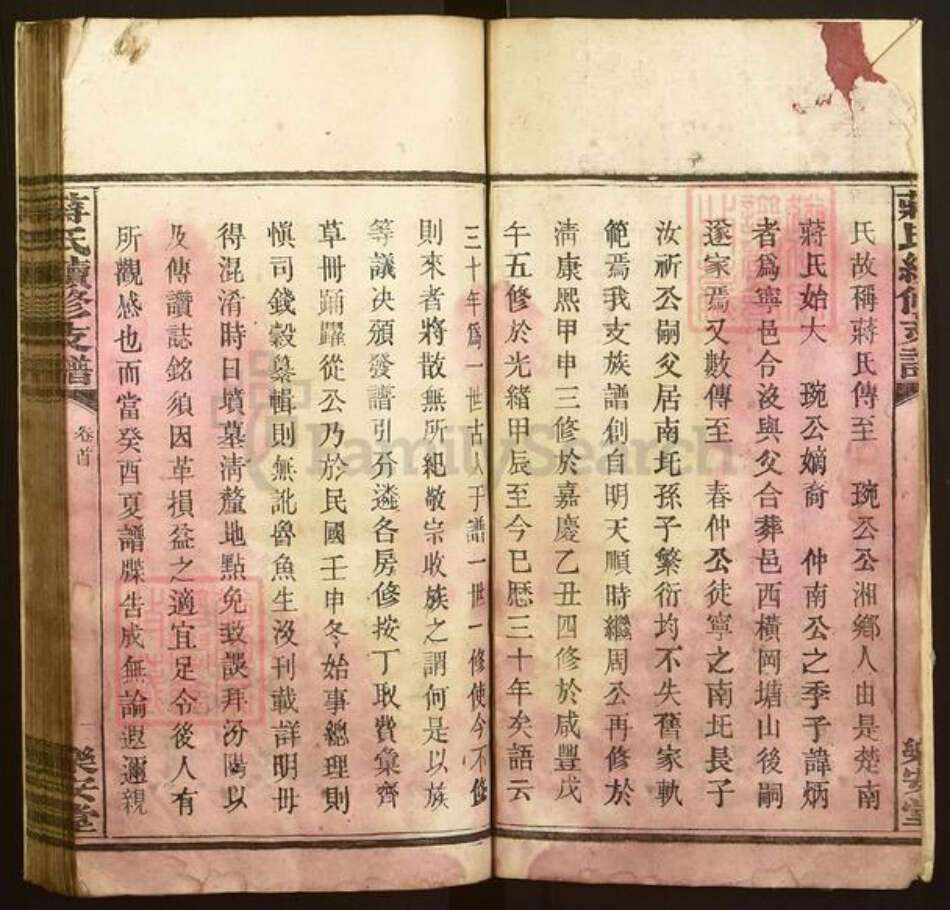 氏故稱蔣氏傳至 琬公公湘鄉人由是楚南
蔣氏始大 琬公嫡裔 仲南公之季子諱炳
者為寧邑令沒與父合葬邑西橫岡塘山後嗣
遂家焉又數傳至 春仲公徒寧之南圫長子
汝祈公嗣父居南圫孫子繁衍均不失舊家軌
範焉我支族譜創自明天順時繼周公再修於
清康熙甲申三修於嘉慶乙丑四修於咸豐戊
午五修於光緒甲辰至今巳歷三十年矣語云
三十年為一世古人于譜一世一修使今不修
則來者將散無所紀敬宗收族之謂何是以族
等議决頒發譜引分遴各房修按丁取費彙齊
草冊踊躍從公乃於民國壬申冬始事總理則
慎司錢穀纂輯則無訛魯魚生沒刊載詳明毋
得混淆時日墳墓淸釐地點免致誤拜汾陽以
及傳讚誌銘須因革損益之適宜足令後人有
所觀感也而當癸酉夏譜牒吿成無論遐邇親
蔣氏續修支譜
卷首
一
樂安堂
蔣氏續修支譜
樂安堂
FamilySearch